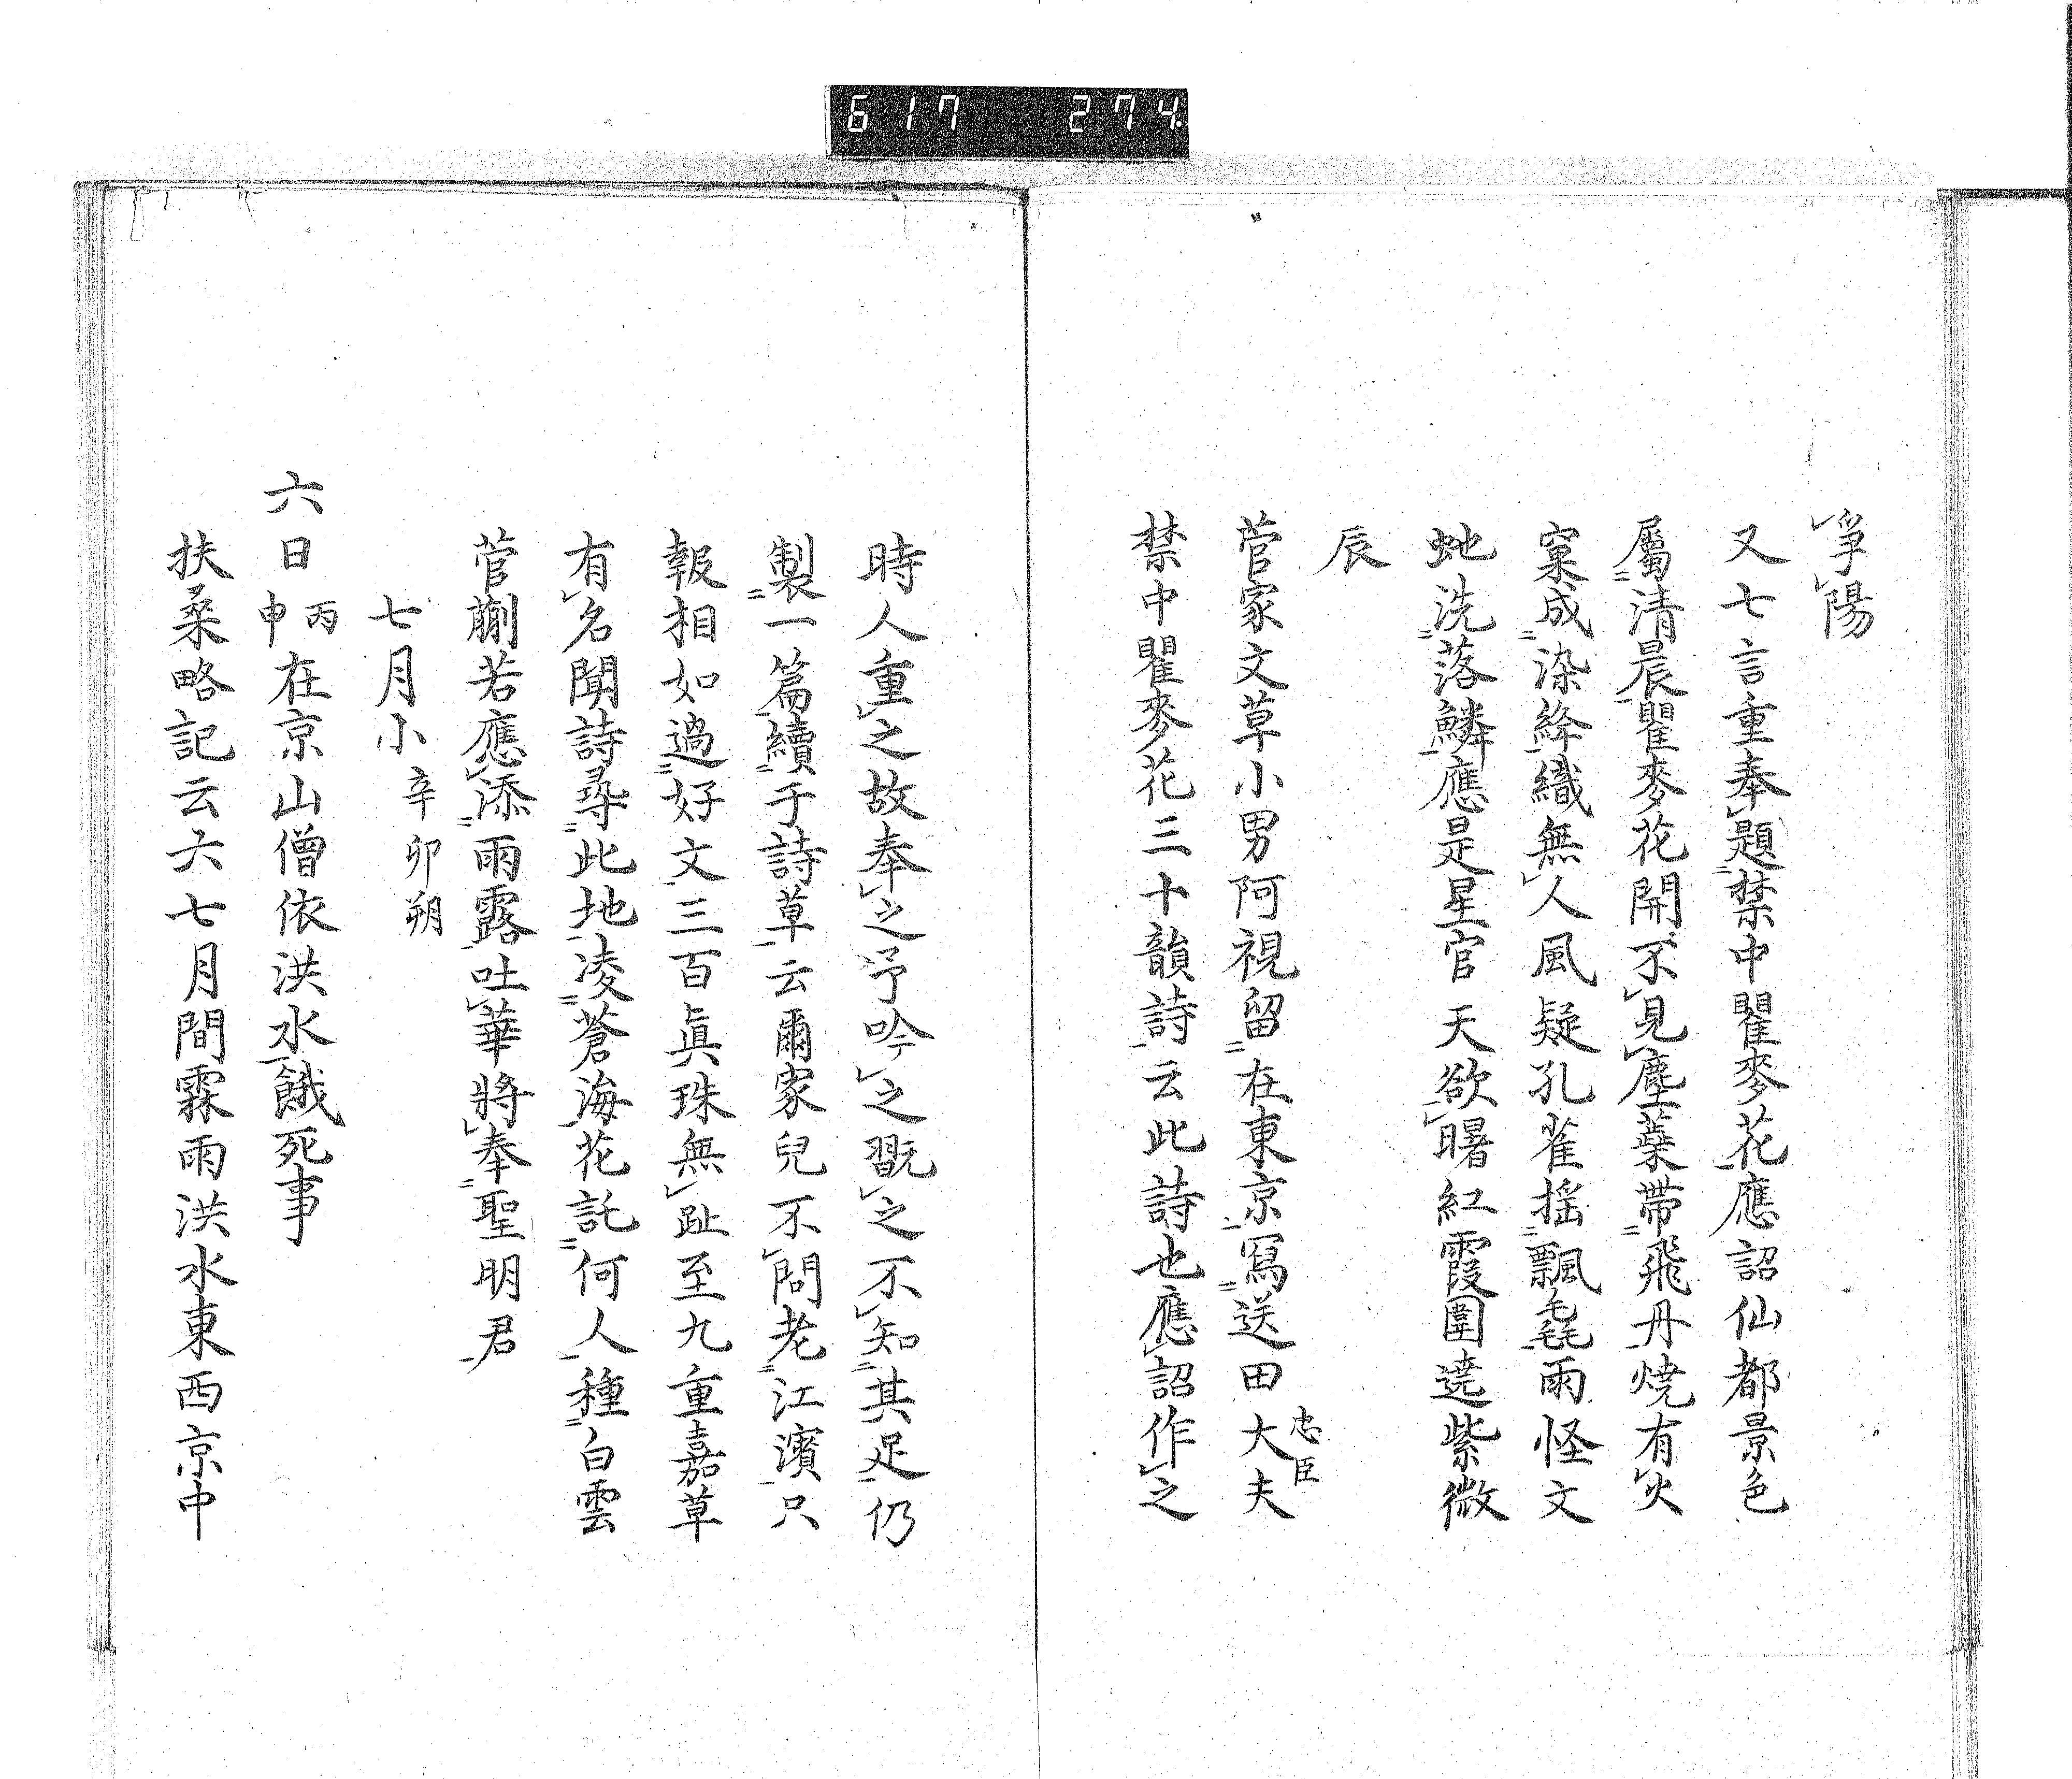 617 274
爭陽
又七言重奉題禁中瞿麥花應詔仙都景色
屬清晨瞿麥花開不見塵蘂帶飛丹燒有火
窠成染絳織無人風疑孔雀揺飄毳雨怪文
虵洗落鱗應是星官天欲曙紅霞圍遶紫微
辰
菅家文草小男阿視留在東京寫送田大夫忠臣
禁中瞿麥花三十韻詩云此詩也應詔作之
時人重之故奉之予吟之翫之不知其足仍
製一篇續于詩草云爾家兒不問老江濱只
報相如過好文三百眞珠無趾至九重嘉草
有名聞詩尋此地凌蒼海花託何人種白雲
菅蒯若應添雨露吐華將奉聖明君
七月小辛卯朔
六日丙申在京山僧依洪水餓死事
扶桑略記云六七月間霖雨洪水東西京中